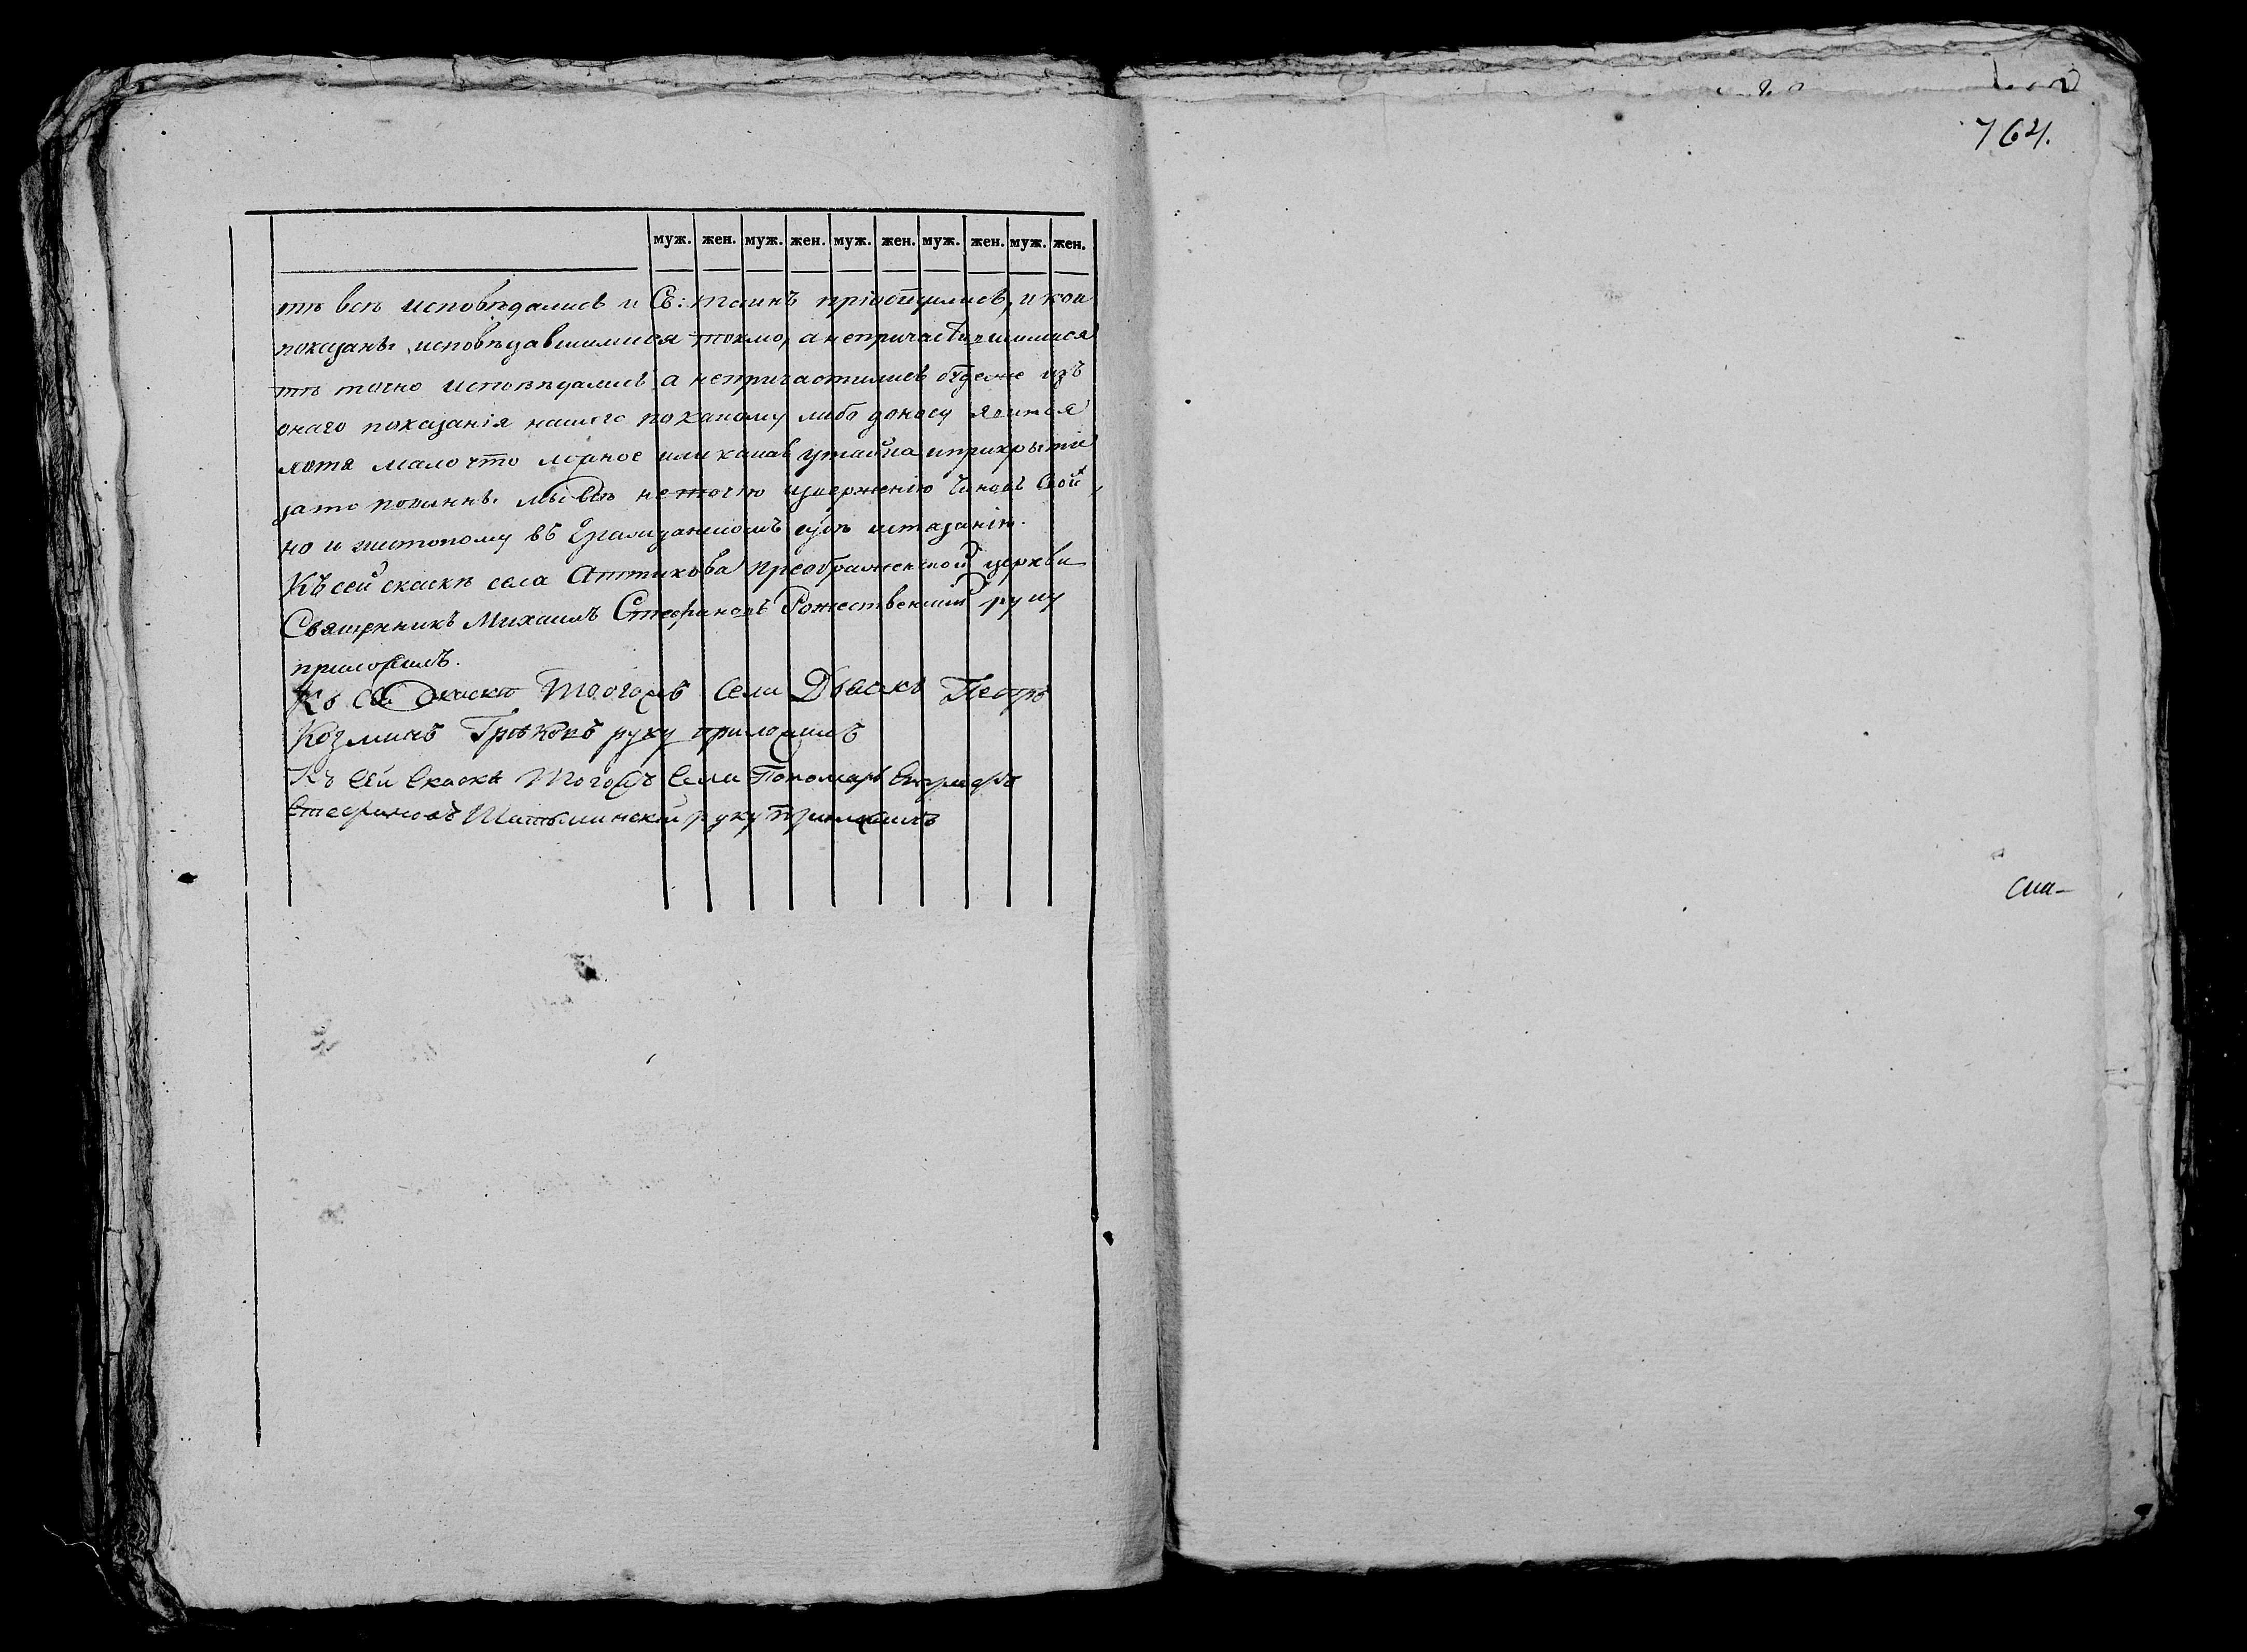 муж. жен. муж. жен. муж. жен. муж. жен. муж. жен.
тѣ всѣ исповѣдались и Св: таинъ пріобщились, и кои
показаны исповѣдавшимися токмо, а непричастившимися
тѣ точно исповѣдались а непричастились будеже изъ
онаго показанія нашего покакому либо доносу явится
хотя мало что ложное или какая утайка иприкрытіе
зато повинны мы всѣ неточію извержению чиновъ свой,
но и жестокому въ гражданскомъ судѣ истязанію.
Къ сей скаскѣ села Аттикова преображенской церкви
Священникъ Михаилъ Стефановъ Рожественский руку
приложилъ.
Къ сей скаске тогожъ села Дьячкъ Петръ
Козминъ руку приложилъ
Къ сей скаске тогожъ села Пономарь
Стефановъ руку приложилъ
764.